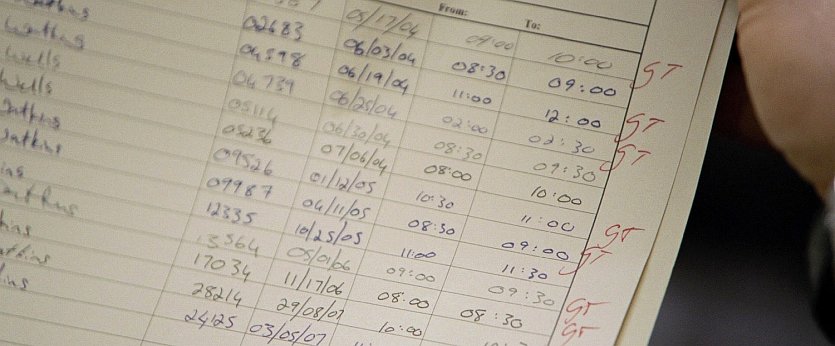 From: To:
05/17/04 09:00 10:00 ST
02683 06/03/04 08:30 09:00
04598 06/19/04 11:00 12:00 ST
Wells 04739 06/25/04 02:00 02:30 ST
Wells 05114 06/30/04 08:30 09:30
05236 07/06/04 08:00 10:00
09526 01/12/05 10:30 11:00 ST
09987 04/11/05 08:30 09:00 ST
12335 10/25/05 11:00 11:30
13564 05/01/06 09:00 09:30 ST
17034 11/17/06 08:00 08:30 ST
28214 29/08/07 10:00
24125 03/05/07